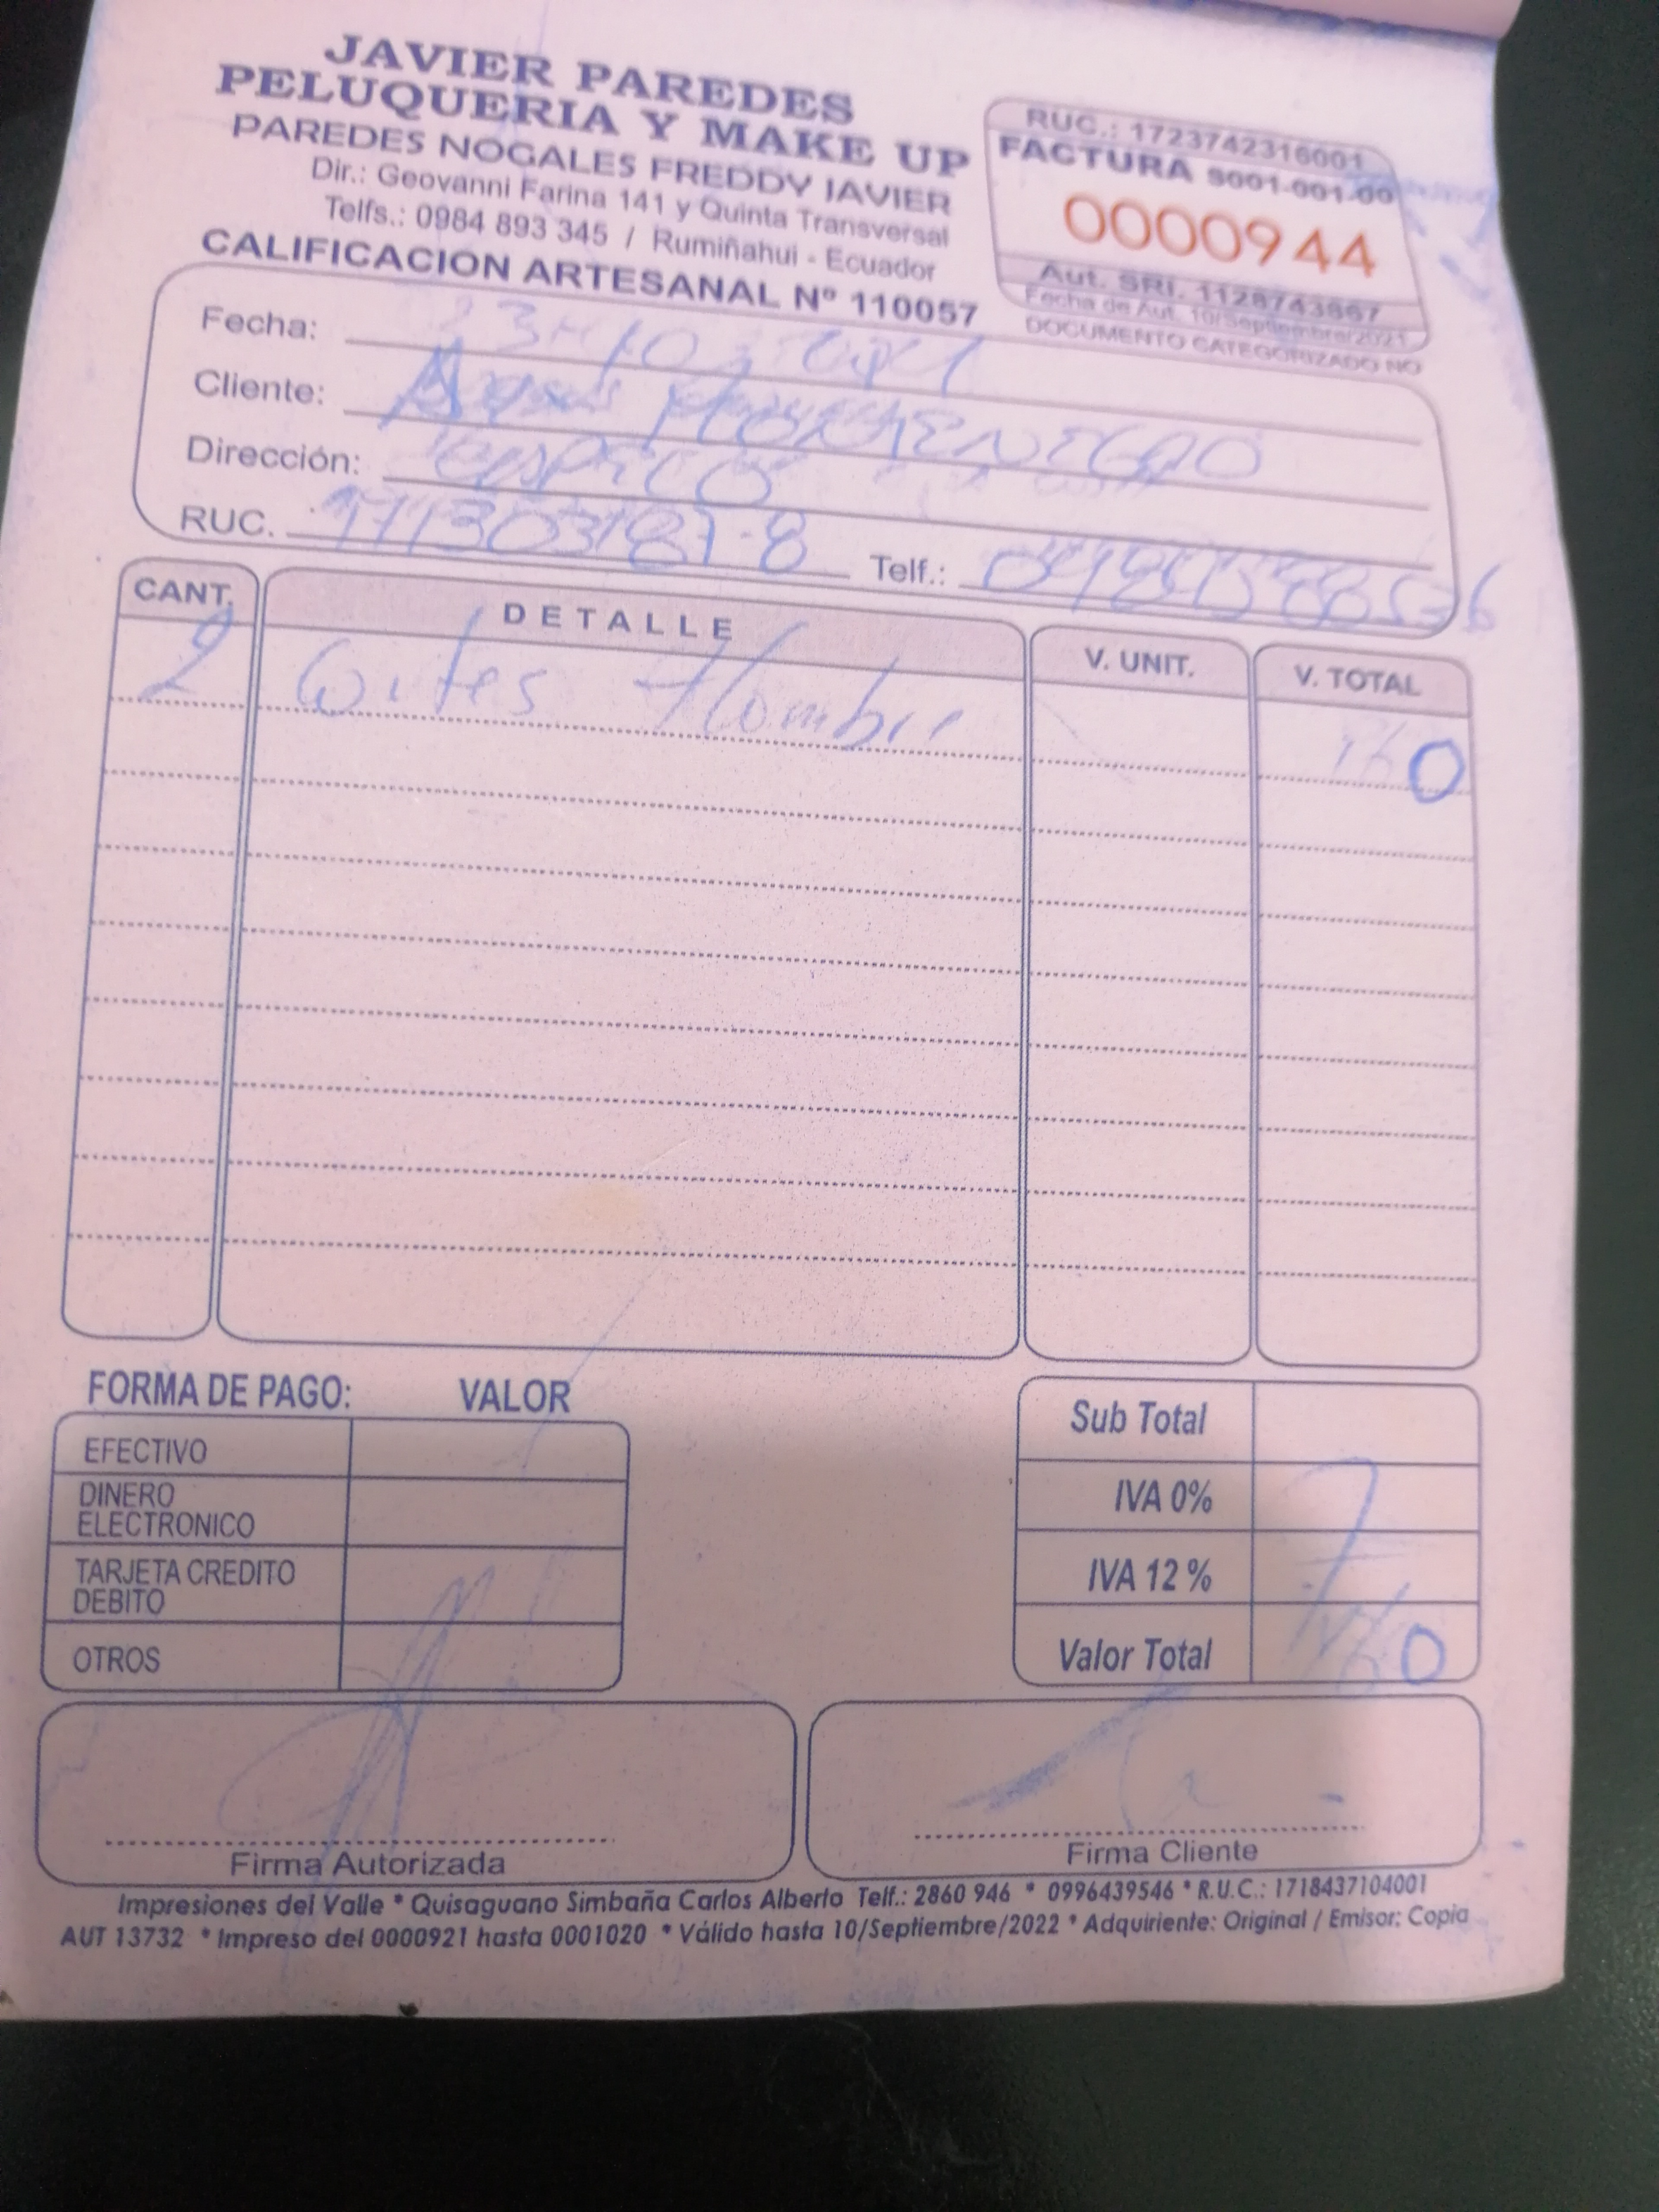 JAVIER PAREDES
PELUQUERIA Y MAKE UP
PAREDES NOGALES FREDDY JAVIER
Dir.: Geovanni Farina 141 y Quinta Transversal
Telfs.: 0984 893 345 / Rumiñahui - Ecuador
CALIFICACION ARTESANAL Nº 110057
RUC.: 1723742316001
FACTURA S001-001-00
0000944
Aut. SRI. 1128743867
Fecha de Aut. 10/Septiembre/2021
DOCUMENTO CATEGORIZADO NO
Fecha:
Cliente: Montenegro
Dirección:
RUC. 171303187-8 Telf.:
CANT. DETALLE V. UNIT. V. TOTAL
2 Cortes Hombre
FORMA DE PAGO: VALOR
EFECTIVO
DINERO ELECTRONICO
TARJETA CREDITO DEBITO
OTROS
Sub Total
IVA 0%
IVA 12 %
Valor Total
Firma Autorizada
Firma Cliente
Impresiones del Valle * Quisaguano Simbaña Carlos Alberto Telf.: 2860 946 * 0996439546 * R.U.C.: 1718437104001
AUT 13732 * Impreso del 0000921 hasta 0001020 * Válido hasta 10/Septiembre/2022 * Adquiriente: Original / Emisor: Copia